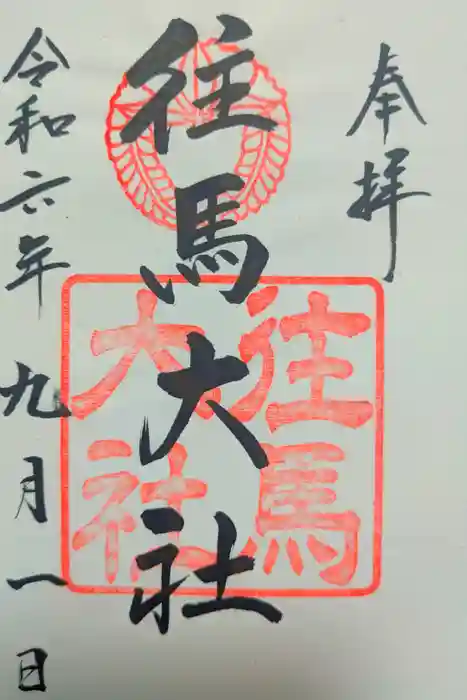 奉拝
往馬大社
往馬大社
令和六年九月一日